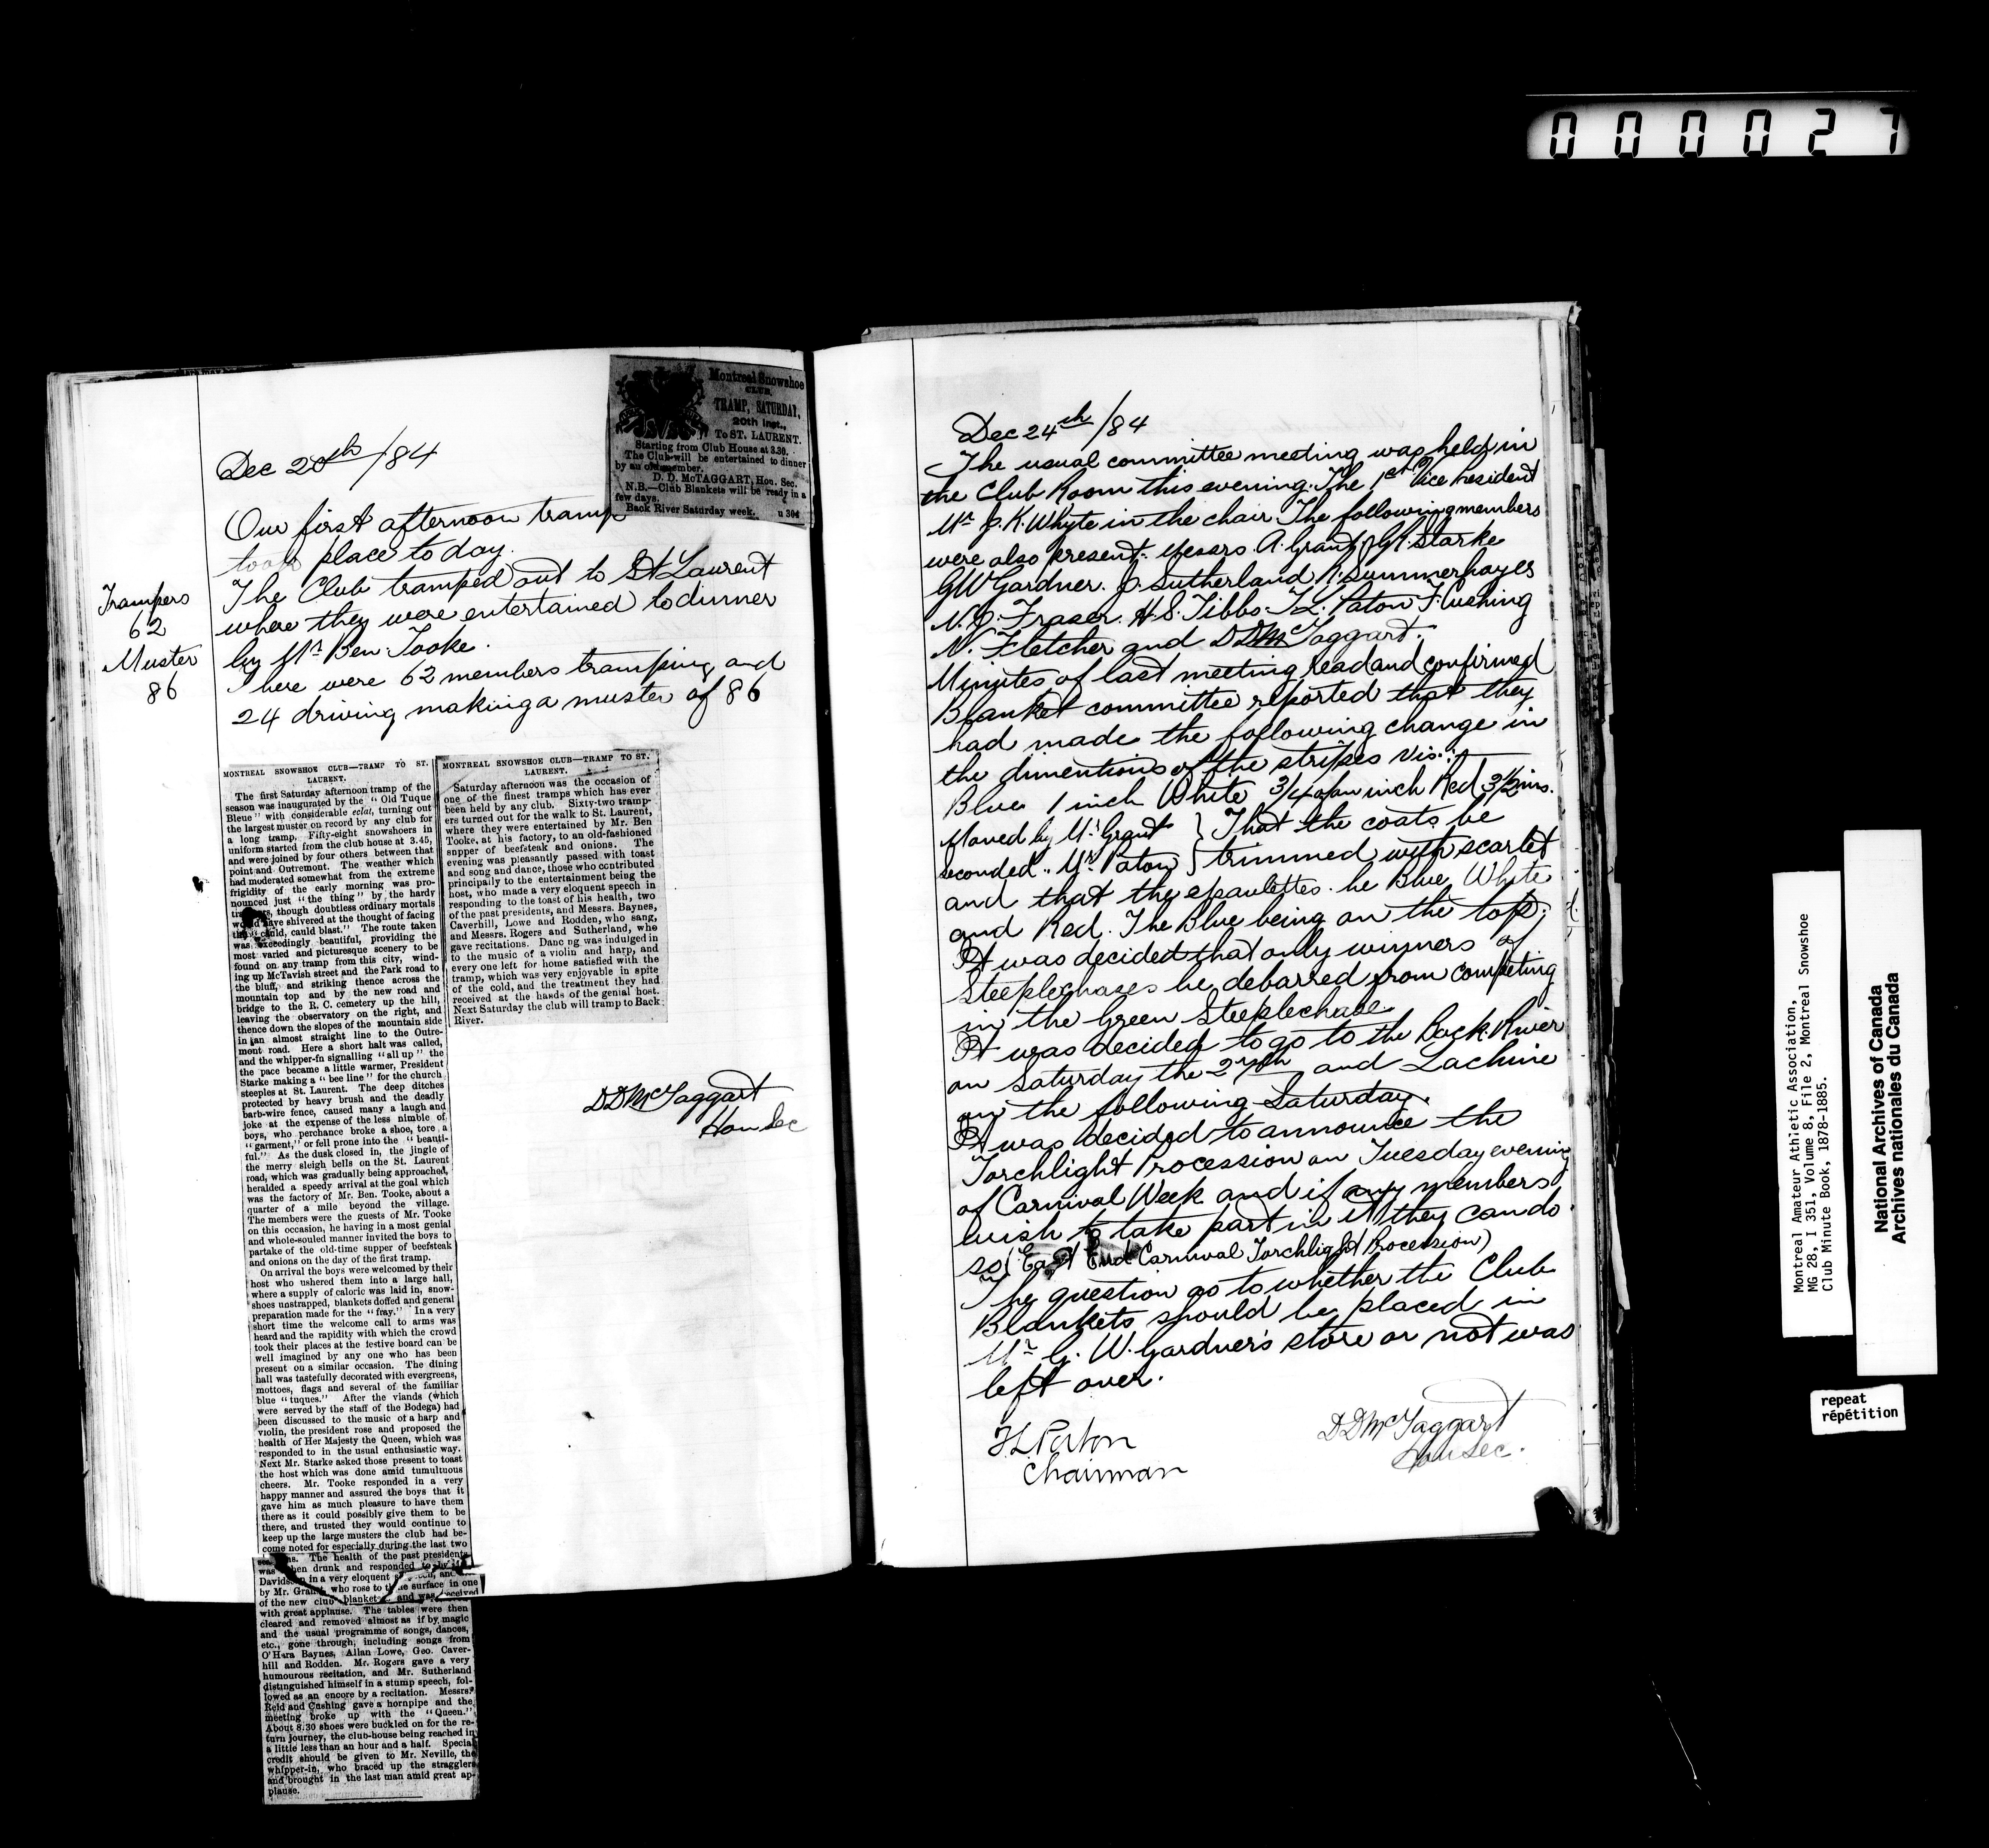 000027
Dec 20th/84
Montreal Snowshoe
CLUB.
TRAMP, SATURDAY,
20th inst.,
To ST. LAURENT.
Starting from Club House at 3.30.
The Club will be entertained to dinner
by an old member.
D. D. McTAGGART, Hon. Sec.
N.B.—Club Blankets will be ready in a
few days.
Back River Saturday week. u 304
Our first afternoon tramp
took place to day.
The Club tramped out to St Laurent
where they were entertained to dinner
by Mr Ben Tooke.
There were 62 members tramping and
24 driving making a muster of 86
Trampers
62
Muster
86
MONTREAL SNOWSHOE CLUB—TRAMP TO ST.
LAURENT.
The first Saturday afternoon tramp of the
season was inaugurated by the "Old Tuque
Bleue" with considerable eclat, turning out
the largest muster on record by any club for
a long tramp. Fifty-eight snowshoers in
uniform started from the club house at 3.45,
and were joined by four others between that
point and Outremont. The weather which
had moderated somewhat from the extreme
frigidity of the early morning was pro-
nounced just "the thing" by the hardy
trampers, though doubtless ordinary mortals
would have shivered at the thought of facing
the "cauld, cauld blast." The route taken
was exceedingly beautiful, providing the
most varied and picturesque scenery to be
found on any tramp from this city, wind-
ing up McTavish street and the Park road to
the bluff, and striking thence across the
mountain top and by the new road and
bridge to the R. C. cemetery up the hill,
leaving the observatory on the right, and
thence down the slopes of the mountain side
in an almost straight line to the Outre-
mont road. Here a short halt was called,
and the whipper-in signalling "all up" the
the pace became a little warmer, President
Starke making a "bee line" for the church
steeples at St. Laurent. The deep ditches
protected by heavy brush and the deadly
barb-wire fence, caused many a laugh and
joke at the expense of the less nimble of
boys, who perchance broke a shoe, tore a
"garment," or fell prone into the "beauti-
ful." As the dusk closed in, the jingle of
the merry sleigh bells on the St. Laurent
road, which was gradually being approached,
heralded a speedy arrival at the goal which
was the factory of Mr. Ben. Tooke, about a
quarter of a mile beyond the village.
The members were the guests of Mr. Tooke
on this occasion, he having in a most genial
and whole-souled manner invited the boys to
partake of the old-time supper of beefsteak
and onions on the day of the first tramp.
On arrival the boys were welcomed by their
host who ushered them into a large hall,
where a supply of caloric was laid in, snow-
shoes unstrapped, blankets doffed and general
preparation made for the "fray." In a very
short time the welcome call to arms was
heard and the rapidity with which the crowd
took their places at the festive board can be
well imagined by any one who has been
present on a similar occasion. The dining
hall was tastefully decorated with evergreens,
mottoes, flags and several of the familiar
blue "tuques." After the viands (which
were served by the staff of the Bodega) had
been discussed to the music of a harp and
violin, the president rose and proposed the
health of Her Majesty the Queen, which was
responded to in the usual enthusiastic way.
Next Mr. Starke asked those present to toast
the host which was done amid tumultuous
cheers. Mr. Tooke responded in a very
happy manner and assured the boys that it
gave him as much pleasure to have them
there as it could possibly give them to be
there, and trusted they would continue to
keep up the large musters the club had be-
come noted for especially during the last two
seasons. The health of the past presidents
was then drunk and responded to by
Davidson in a very eloquent speech, and
by Mr. Grant, who rose to the surface in one
of the new club blankets and was received
with great applause. The tables were then
cleared and removed almost as if by magic
and the usual programme of songs, dances,
etc., gone through, including songs from
O'Hara Baynes, Allan Lowe, Geo. Caver-
hill and Rodden. Mr. Rogers gave a very
humourous recitation, and Mr. Sutherland
distinguished himself in a stump speech, fol-
lowed as an encore by a recitation. Messrs.
Reid and Cushing gave a hornpipe and the
meeting broke up with the "Queen."
About 8.30 shoes were buckled on for the re-
turn journey, the club-house being reached in
a little less than an hour and a half. Special
credit should be given to Mr. Neville, the
whipper-in, who braced up the stragglers
and brought in the last man amid great ap-
plause.
MONTREAL SNOWSHOE CLUB—TRAMP TO ST.
LAURENT.
Saturday afternoon was the occasion of
one of the finest tramps which has ever
been held by any club. Sixty-two tramp-
ers turned out for the walk to St. Laurent,
where they were entertained by Mr. Ben
Tooke, at his factory, to an old-fashioned
supper of beefsteak and onions. The
evening was pleasantly passed with toast
and song and dance, those who contributed
principally to the entertainment being the
host, who made a very eloquent speech in
responding to the toast of his health, two
of the past presidents, and Messrs. Baynes,
Caverhill, Lowe and Rodden, who sang,
and Messrs. Rogers and Sutherland, who
gave recitations. Danc ng was indulged in
to the music of a violin and harp, and
every one left for home satisfied with the
tramp, which was very enjoyable in spite
of the cold, and the treatment they had
received at the hands of the genial host.
Next Saturday the club will tramp to Back
River.
DDMcTaggart
Hon Sec
Dec 24th/84
The usual committee meeting was held in
the Club Room this evening. The 1st Vice President
Mr J. K. Whyte in the chair. The following members
were also present: Messrs. A. Grant, G R. Starke
GW Gardner. J. Sutherland R. Summerhayes
N. J. Fraser. H. S. Tibbs. T L. Paton F. Cushing
N. Fletcher and DDMcTaggart.
Minutes of last meeting read and confirmed
Blanket committee reported that they
had made the following change in
the dimentions of the stripes vis:
Blue 1 inch White 3/4 of an inch Red 3 1/2 ins.
Moved by Mr Grant } That the coats be
seconded " Mr Paton } trimmed with scarlet
and that the epaulettes be Blue White
and Red. The Blue being on the top.
It was decided that only winners of
Steeplechases be debarred from competing
in the Green Steeplechase.
It was decided to go to the Back River
on Saturday the 27th and Lachine
on the following Saturday.
It was decided to announce the
Torchlight Procession on Tuesday evening
of Carnival Week and if any members
wish to take part in it they can do
so (East End Carnival Torchlight Procession)
The question as to whether the Club
Blankets should be placed in
Mr G. W. Gardner's store or not was
left over.
TL Paton
Chairman
DDMcTaggart
Hon Sec.
Montreal Amateur Athletic Association,
MG 28, I 351, Volume 8, File 2, Montreal Snowshoe
Club Minute Book, 1878-1885.
National Archives of Canada
Archives nationales du Canada
repeat
répétition